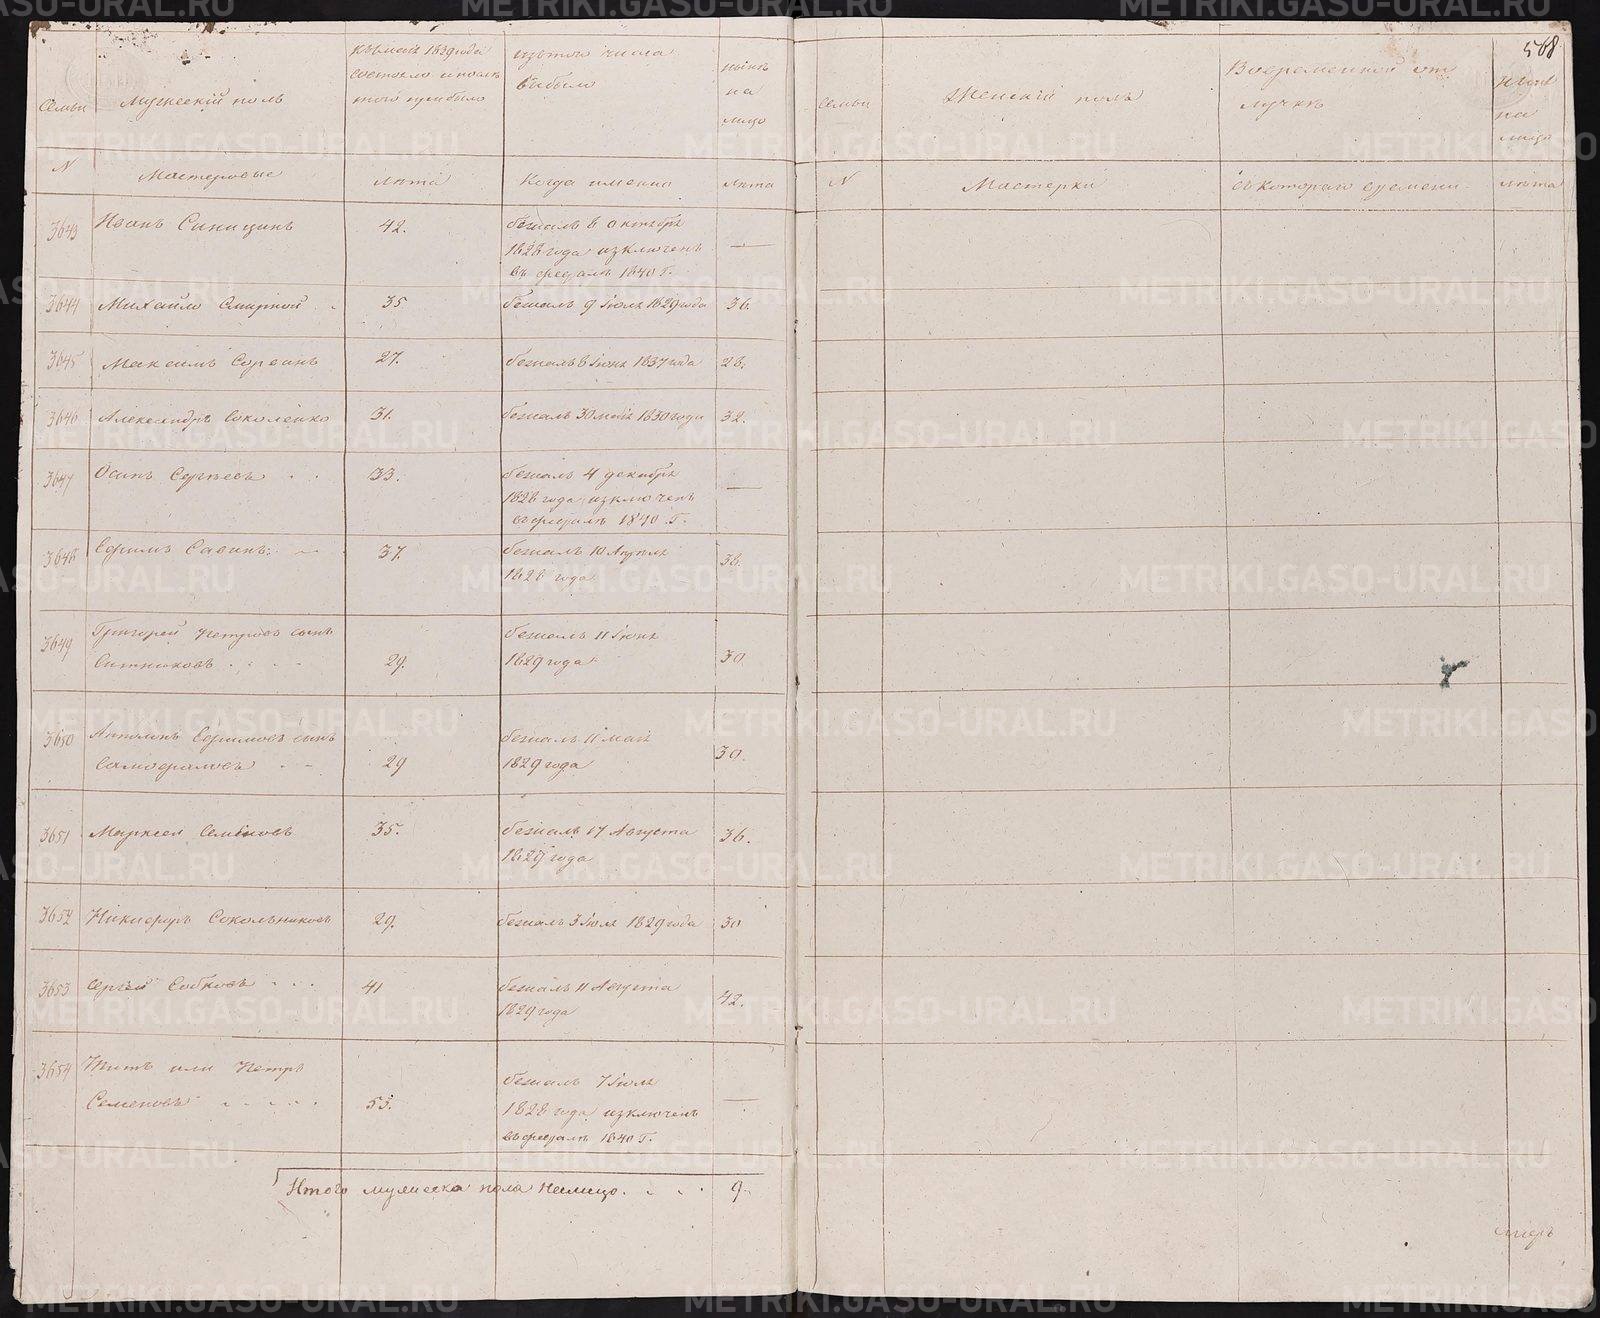 568
Семьи
Мужескiй полъ
къ маiя 1839 года
состояло и после
того прибыло
изтого числа
выбыло
нынѣ
на
лицо
семьи
Женскiй полъ
Вовременной от
лучкѣ
Нынѣ
на
лицо
N
Мастеровые
лѣта
Когда именно
лѣта
N
Мастерки
съ котораго времени
лѣта
3643
Иванъ Синицынъ
42.
бежалъ в октябрѣ
1828 года изключенъ
въ февралѣ 1840 г.
—
3644
Михайло Смирной
35
бежалъ 9 Iюля 1829 года
36.
3645
Максимъ
27.
бежалъ в Iюнѣ 1837 года
28.
3646
Александръ Соколенко
31.
бежалъ 30 маiя 1830 года
32.
3647
Осипъ Сергѣевъ
33.
бежалъ 4 декабря
1828 года изключенъ
въ февралѣ 1840 г.
—
3648
Ефимъ Савинъ
37.
бежалъ 10 Апрѣля
1828 года
38.
3649
Григорей Петровъ сынъ
Ситниковъ
29.
бежалъ 11 Iюня
1829 года
30
3650
Антонъ Ефимовъ сынъ
29
бежалъ 11 маiя
1829 года
30.
3651
35.
бежалъ 17 Августа
1829 года
36.
3652
Никифоръ Сокольниковъ
29.
бежалъ 3 Iюля 1829 года
30
3653
Сергѣй Собковъ
41
бежалъ 11 Августа
1829 года
42.
3654
Титъ или Петръ
Семеновъ
55.
бежалъ 7 Iюля
1828 года изключенъ
въ февралѣ 1840 г.
—
Итого мужеска пола налицо
9.
METRIKI.GASO-URAL.RU